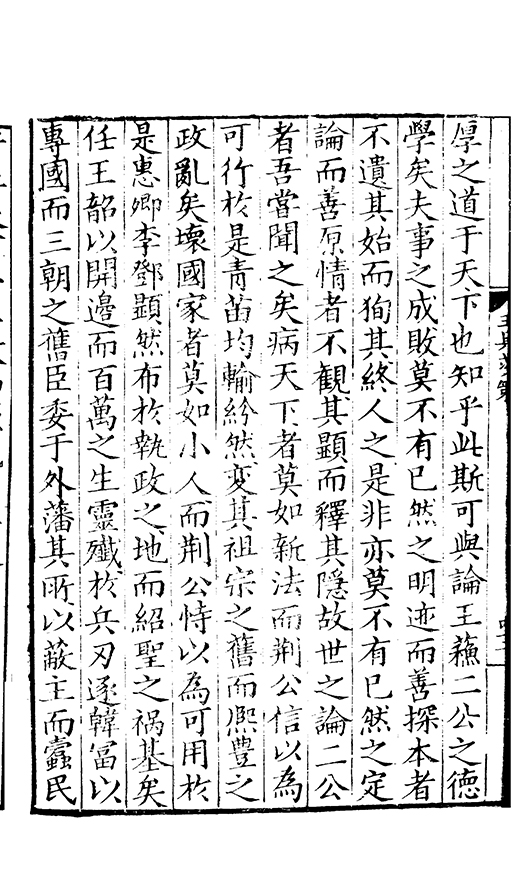 厚之道于天下也知乎此斯可與論王蘓二公之德
學矣夫事之成敗莫不有已然之明迹而善探本者
不遺其始而狥其終人之是非亦莫不有已然之定
論而善原情者不觀其顯而釋其隱故世之論二公
者吾嘗聞之矣病天下者莫如新法而荆公信以為
可行於是青苗均輸紛然变其祖宗之舊而熈豊之
政亂矣壞國家者莫如小人而荆公恃以為可用於
是惠卿李鄧顯然布於執政之地而紹聖之禍基矣
任王韶以開邊而百萬之生靈殱於兵刃逐韓富以
專國而三朝之舊臣委于外藩其所以蔽主而蠹民